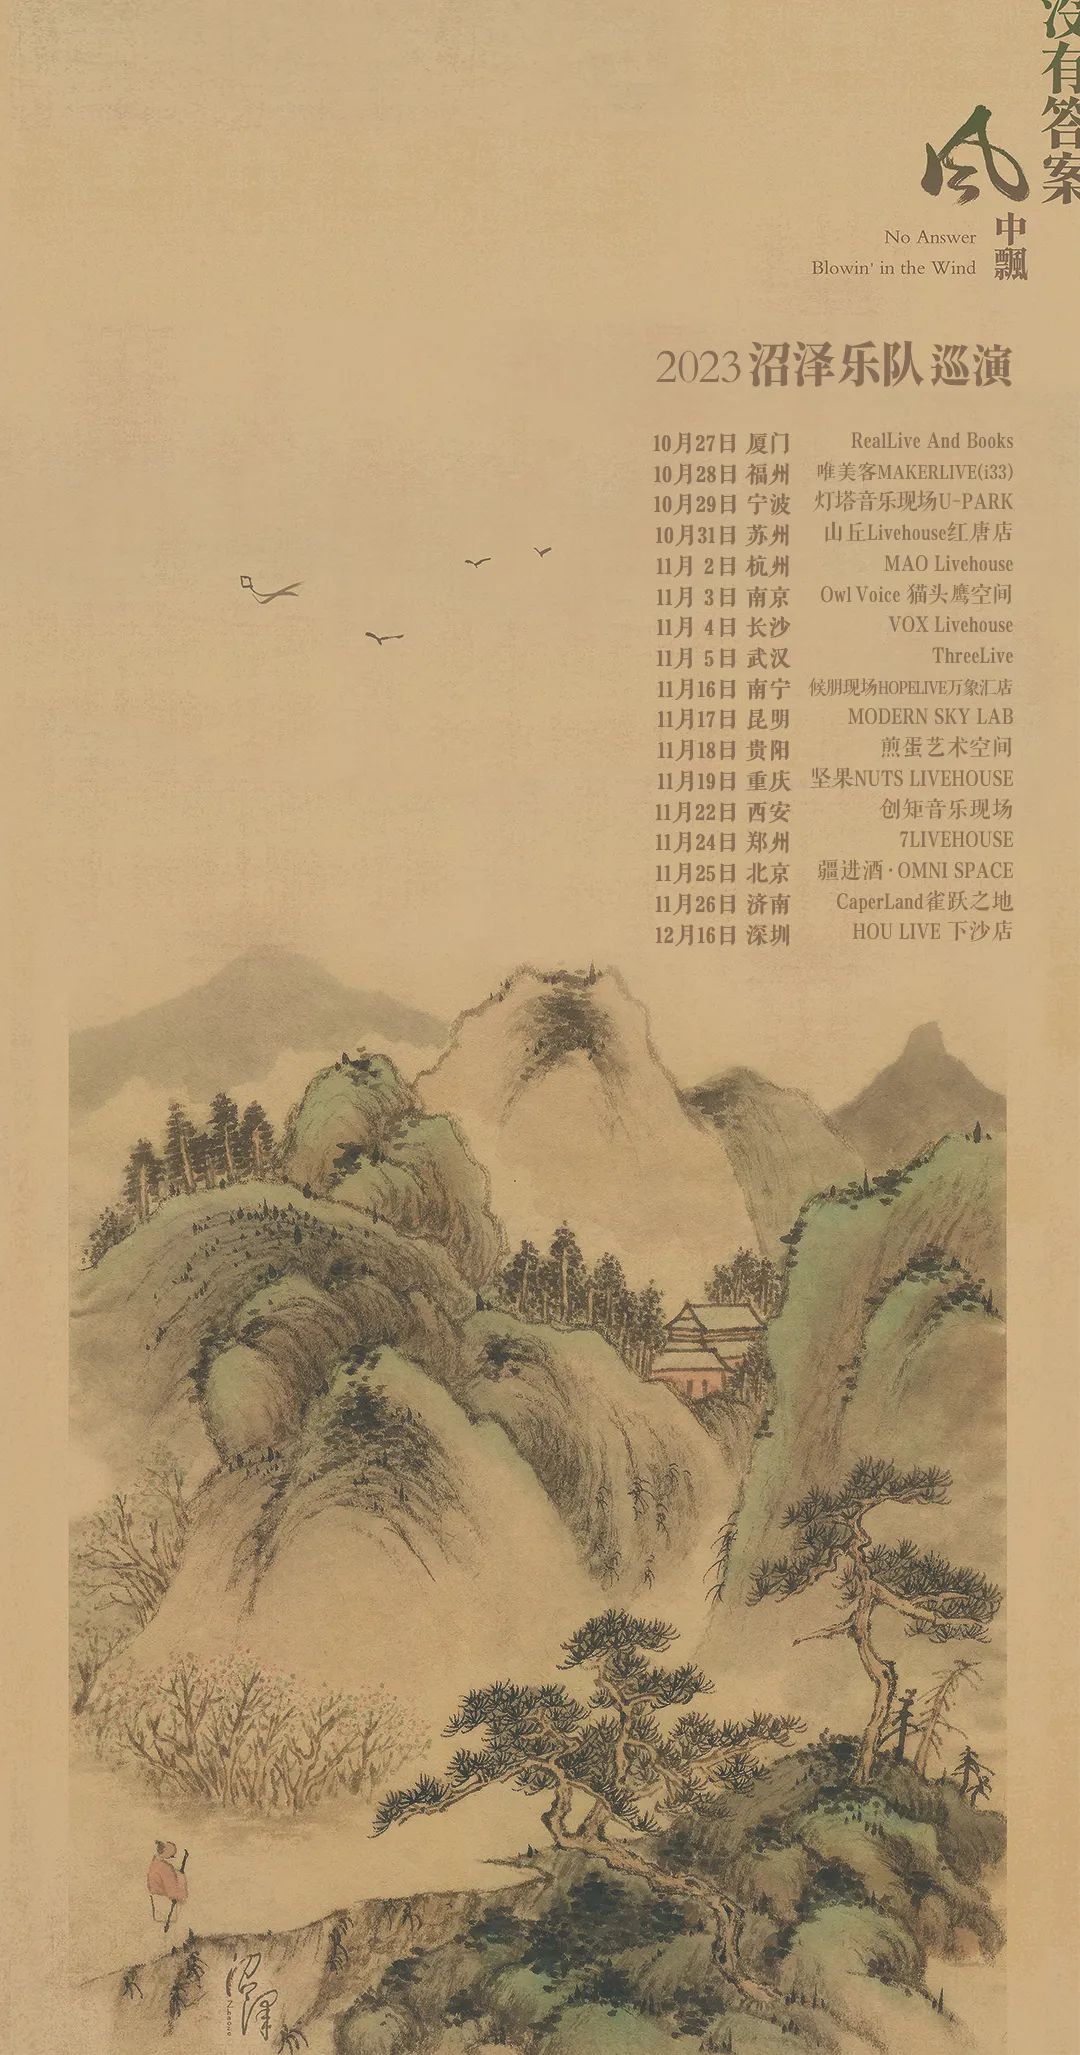 没有答案
风
中飄
No Answer
Blowin' in the Wind
2023 沼泽乐队 巡演
10月27日 厦门 RealLive And Books
10月28日 福州 唯美客MAKERLIVE(i33)
10月29日 宁波 灯塔音乐现场U-PARK
10月31日 苏州 山丘Livehouse红唐店
11月 2日 杭州 MAO Livehouse
11月 3日 南京 Owl Voice 猫头鹰空间
11月 4日 长沙 VOX Livehouse
11月 5日 武汉 ThreeLive
11月16日 南宁 候朋现场HOPELIVE万象汇店
11月17日 昆明 MODERN SKY LAB
11月18日 贵阳 煎蛋艺术空间
11月19日 重庆 坚果NUTS LIVEHOUSE
11月22日 西安 创矩音乐现场
11月24日 郑州 7LIVEHOUSE
11月25日 北京 疆进酒·OMNI SPACE
11月26日 济南 CaperLand雀跃之地
12月16日 深圳 HOU LIVE 下沙店
沼泽